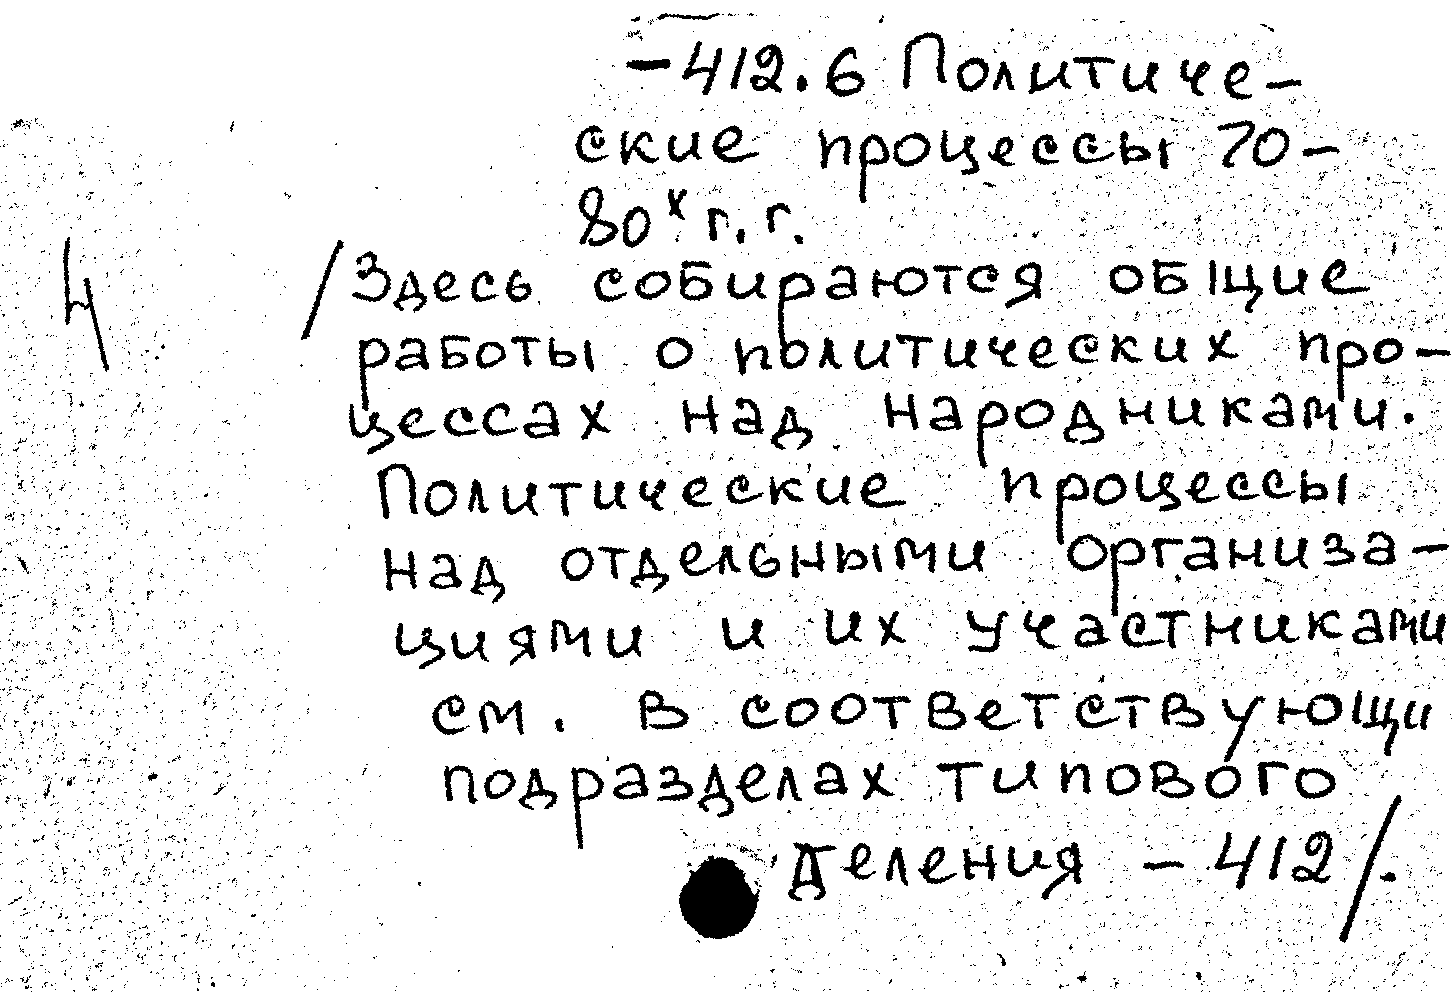 -412.6 Политиче-
ские процессы 70-
80х г.г.
/Здесь собираются общие
работы о политических про-
цессах над народниками.
Политические процессы
над отдельными организа-
циями и их участниками
см. в соответствующи
подразделах типового
деления -412/.